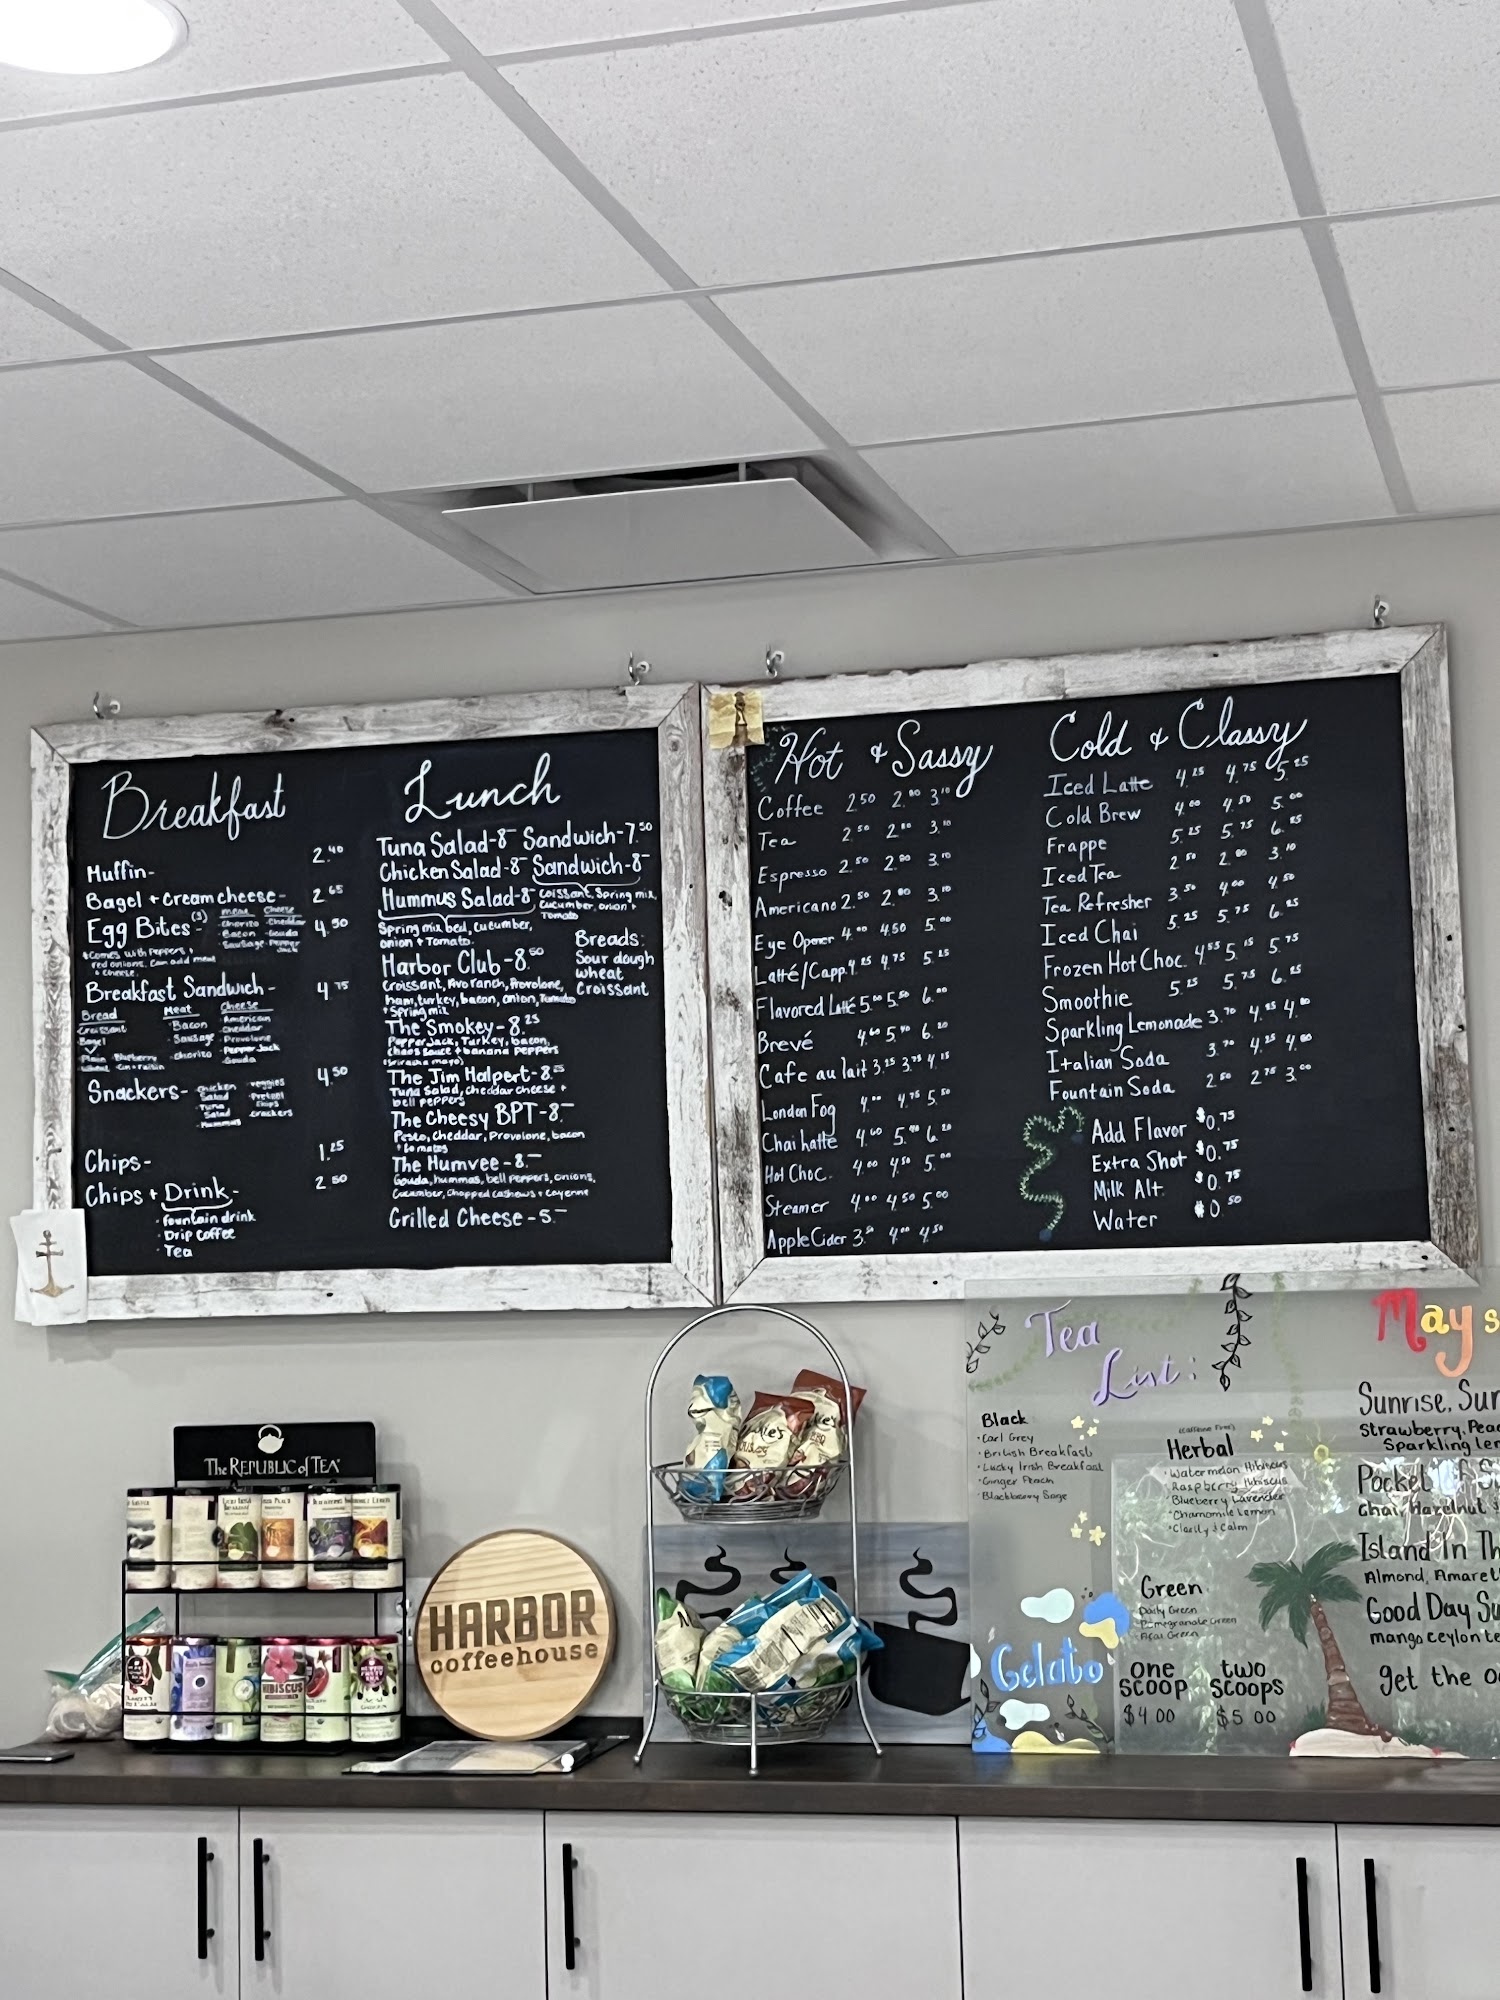 Breakfast
Muffin- 2.40
Bagel + Creamcheese- 2.65
Egg Bites (3) 4.50
meat Cheese
·Chorizo ·Cheddar
·Bacon ·Gouda
·Sausage ·Pepper Jack
*Comes with Peppers +
red onions. Can add meat
+ cheese.
Breakfast Sandwich- 4.75
Bread Meat Cheese
Croissant ·Bacon ·American
Bagel ·Sausage ·Cheddar
·Plain ·Blueberry ·Chorizo ·Provolone
·Wheat ·Cin+raisin ·Pepper Jack
·Gouda
Snackers- 4.50
·Chicken Salad ·Veggies
·Tuna Salad ·Pretzel Chips
·Hummus ·Crackers
Chips- 1.25
Chips + Drink- 2.50
·fountain drink
·Drip Coffee
·Tea
Lunch
Tuna Salad-8— Sandwich-7.50
Chicken Salad-8— Sandwich-8—
Hummus Salad-8— Coissant, Spring mix,
Cucumber, onion +
Tomato
Spring mix bed, cucumber,
onion + Tomato.
Harbor Club-8.50
Croissant, Avo ranch, Provolone,
ham, turkey, bacon, onion, Tomato
+ Spring mix
Breads:
Sour dough
wheat
Croissant
The Smokey-8.25
Pepper Jack, Turkey, bacon,
chaos sauce + banana peppers
(sriracha mayo)
The Jim Halpert-8.25
Tuna Salad, cheddar cheese +
bell peppers
The Cheesy BPT-8.—
Pesto, cheddar, Provolone, bacon
+ tomatoes
The Humvee-8.—
Gouda, hummas, bell peppers, onions,
Cucumber, chopped cashews + cayenne
Grilled Cheese-5.—
Hot & Sassy
Coffee 2.50 2.80 3.10
Tea 2.50 2.80 3.10
Espresso 2.50 2.80 3.10
Americano 2.50 2.80 3.10
Eye Opener 4.00 4.50 5.00
Latté/Capp. 4.25 4.75 5.25
Flavored Latté 5.00 5.50 6.00
Brevé 4.60 5.40 6.20
Cafe au lait 3.25 3.75 4.15
London Fog 4.00 4.75 5.50
Chai Latte 4.60 5.40 6.20
Hot Choc. 4.00 4.50 5.00
Steamer 4.00 4.50 5.00
Apple Cider 3.50 4.00 4.50
Cold & Classy
Iced Latte 4.25 4.75 5.25
Cold Brew 4.00 4.50 5.00
Frappe 5.25 5.75 6.25
Iced Tea 2.50 2.80 3.10
Tea Refresher 3.50 4.00 4.50
Iced Chai 5.25 5.75 6.25
Frozen Hot Choc. 4.55 5.15 5.75
Smoothie 5.25 5.75 6.25
Sparkling Lemonade 3.70 4.25 4.80
Italian Soda 3.70 4.25 4.80
Fountain Soda 2.50 2.75 3.00
Add Flavor $0.75
Extra Shot $0.75
Milk Alt. $0.75
Water $0.50
Tea
List:
Black
·Earl Grey
·British Breakfast
·Lucky Irish Breakfast
·Ginger Peach
·Blackberry Sage
(Caffeine Free)
Herbal
·Watermelon Hibiscus
Raspberry Hibiscus
Blueberry Lavender
·Chamomile Lemon
·Clarity + Calm
Green
Daily Green
Pomegranate Green
Acai Green
Gelato
one scoop $4.00
two scoops $5.00
May s
Sunrise, Sun
Strawberry, Peac
Sparkling Lem
Pocket of S
Chai, Hazelnut +
Island In Th
Almond, Amarett
Good Day Su
mango ceylon te
get the o
The REPUBLIC of TEA
HIBISCUS
HARBOR
coffeehouse